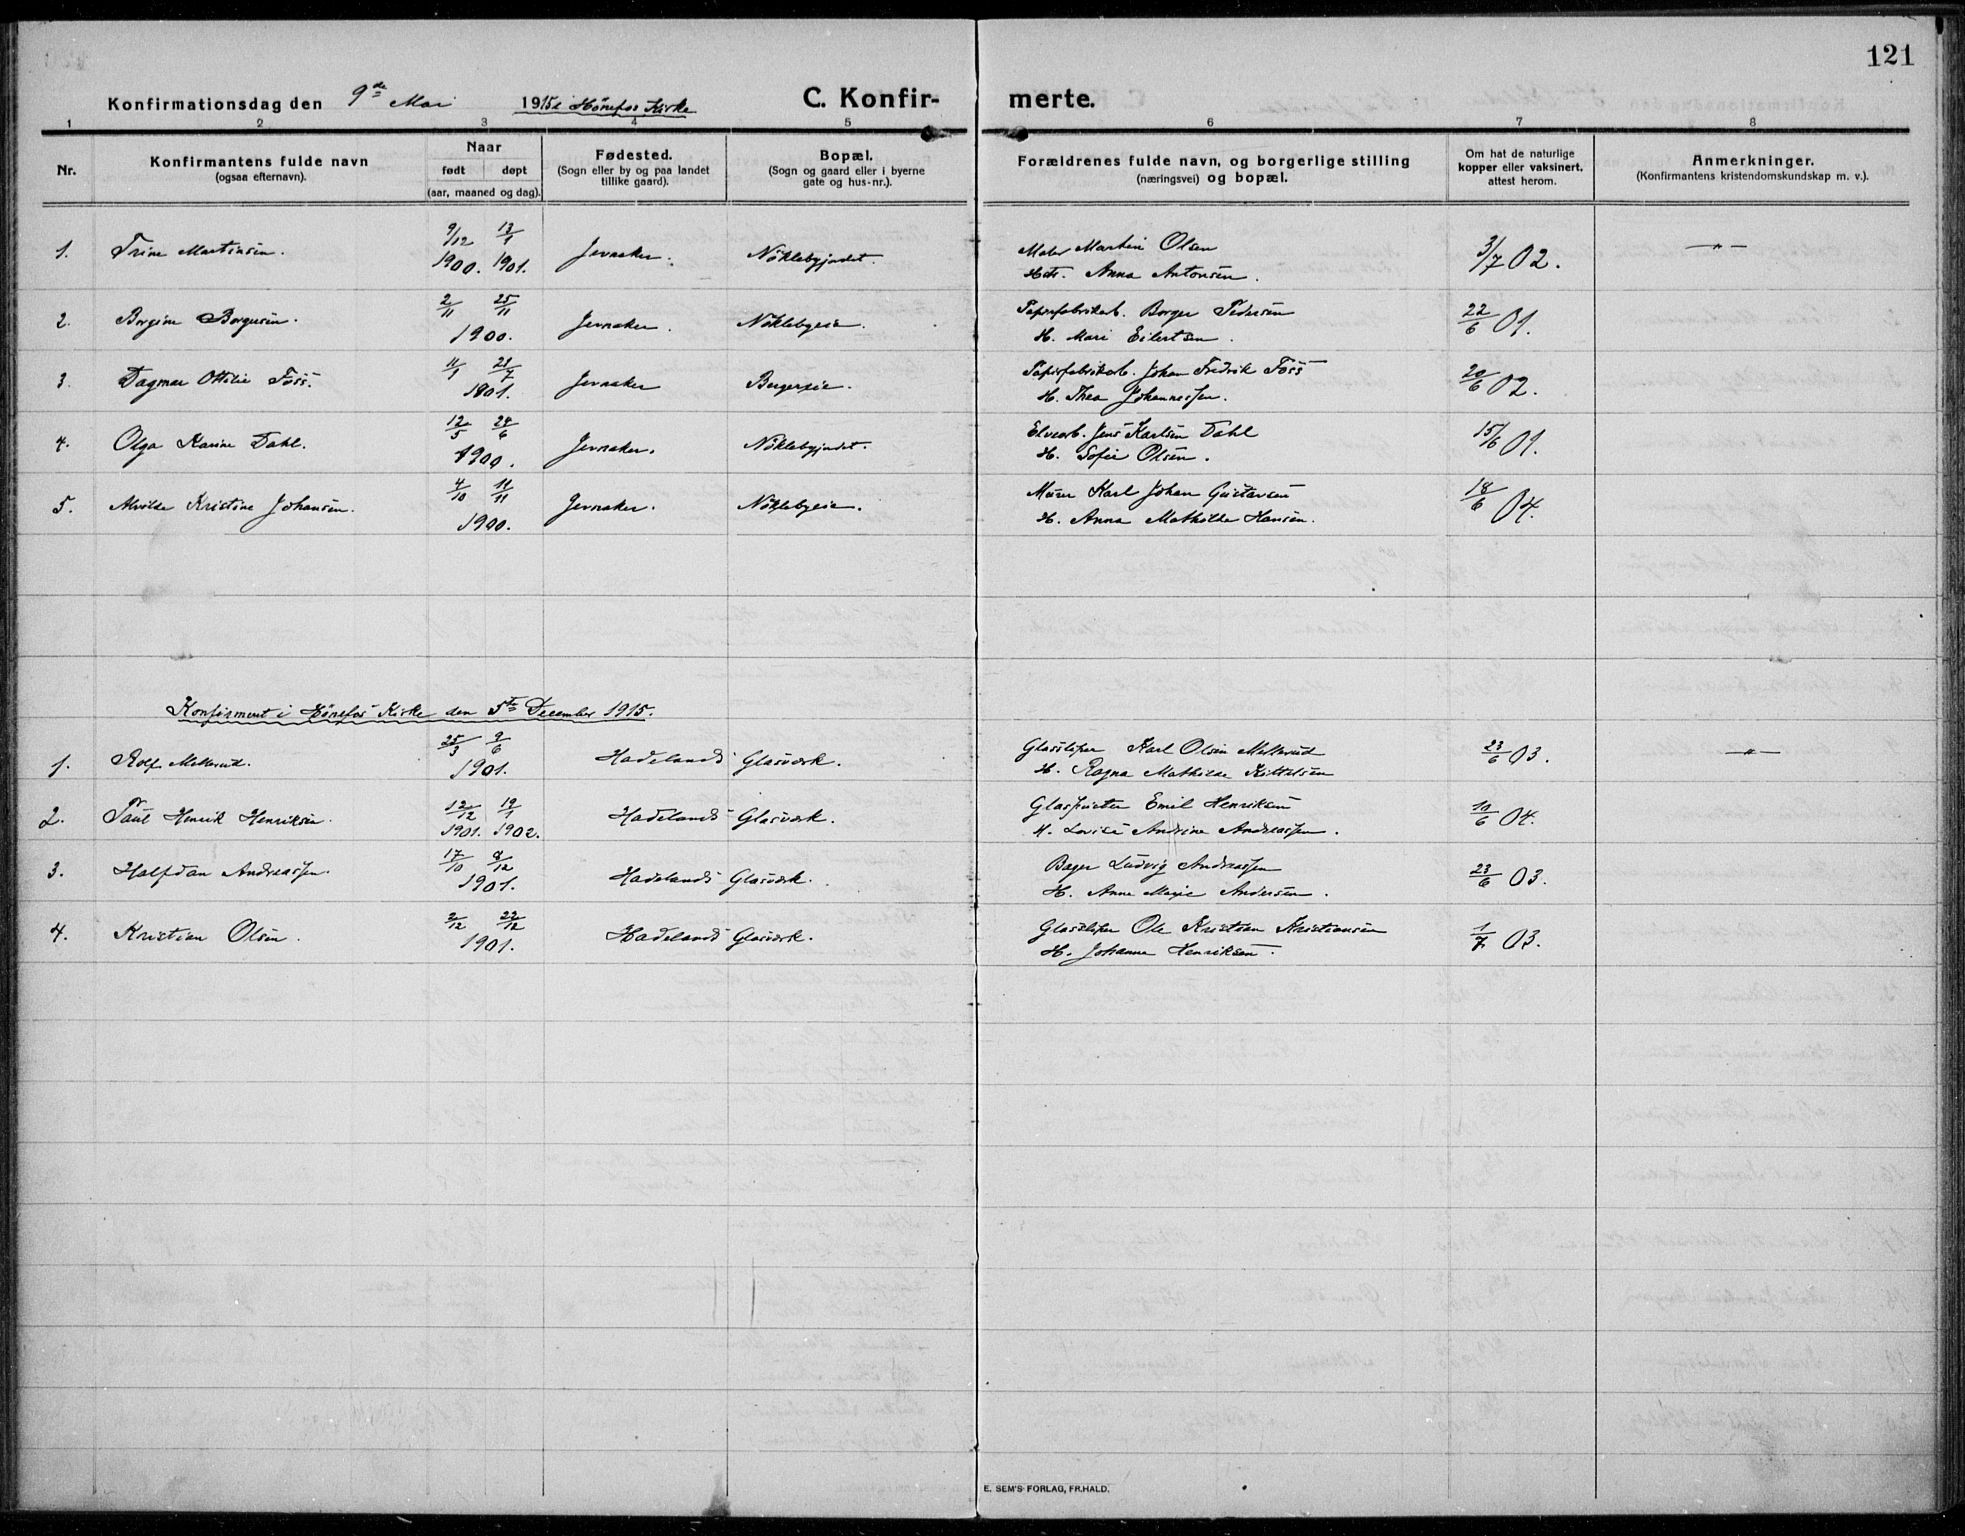 121
Konfirmationsdag den 9de Mai 1915 i Hønefos Kirke C. Konfir- merte.
1 2 3 4 5 6 7 8
Nr. Konfirmantens fulde navn (ogsaa efternavn). Naar født døpt (aar, maaned og dag). Fødested. (Sogn eller by og paa landet tillike gaard). Bopæl. (Sogn og gaard eller i byerne gate og hus-nr.). Forældrenes fulde navn, og borgerlige stilling (næringsvei) og bopæl. Om hat de naturlige kopper eller vaksinert, attest herom. Anmerkninger. (Konfirmantens kristendomskundskap m. v.).
1. Trine Martinsen. 9/12 1900. 13/1 1901. Jevnaker. Nöklebyjordet. Maler Martin Olsen 3/7 02. — " —
Hst. Anna Antonsen.
2. Borgine Borgersen. 2/11 25/11 1900. Jevnaker. Nöklebyeie. Papirfabrikarb. Borger Pedersen 22/6 01.
H. Mari Eilertsen.
3. Dagmar Ottilie Foss. 11/1 21/7 1901. Jevnaker Bergerseie. Papirfabrikarb. Johan Fredrik Foss 20/6 02.
H. Thea Johannessen.
4. Olga Karine Dahl. 12/5 24/6 1900. Jevnaker. Nöklebyjordet. Elvearb. Jens Karlsen Dahl 15/6 01.
H. Sofie Olsen.
5. Alvilde Kristine Johansen. 4/10 11/11 1900. Jevnaker. Nöklebyeie. Murer Karl Johan Gustavsen 18/6 04.
H. Anna Mathilde Hansen.
Konfirmert i Hönefos Kirke den 5te December 1915.
1. Rolf Mellerud. 25/3 9/6 1901. Hadelands Glasværk. Glassliper Karl Olsen Mellerud 23/6 03. — " —
H. Ragna Mathilde Kittelsen
2. Paul Henrik Henriksen. 12/12 1901. 19/1 1902. Hadelands Glasværk. Glaspuster Emil Henriksen 11/6 04.
H. Lovise Andrine Andreassen.
3. Halfdan Andreassen. 17/10 8/12 1901. Hadelands Glasværk. Bager Ludvig Andreassen 23/6 03.
H. Anne Marie Andersen.
4. Kristian Olsen. 2/12 22/12 1901. Hadelands Glasværk. Glassliper Ole Kristian Kristiansen 1/7 03.
H. Johanne Henriksen.
E. SEM'S FORLAG, FR.HALD.